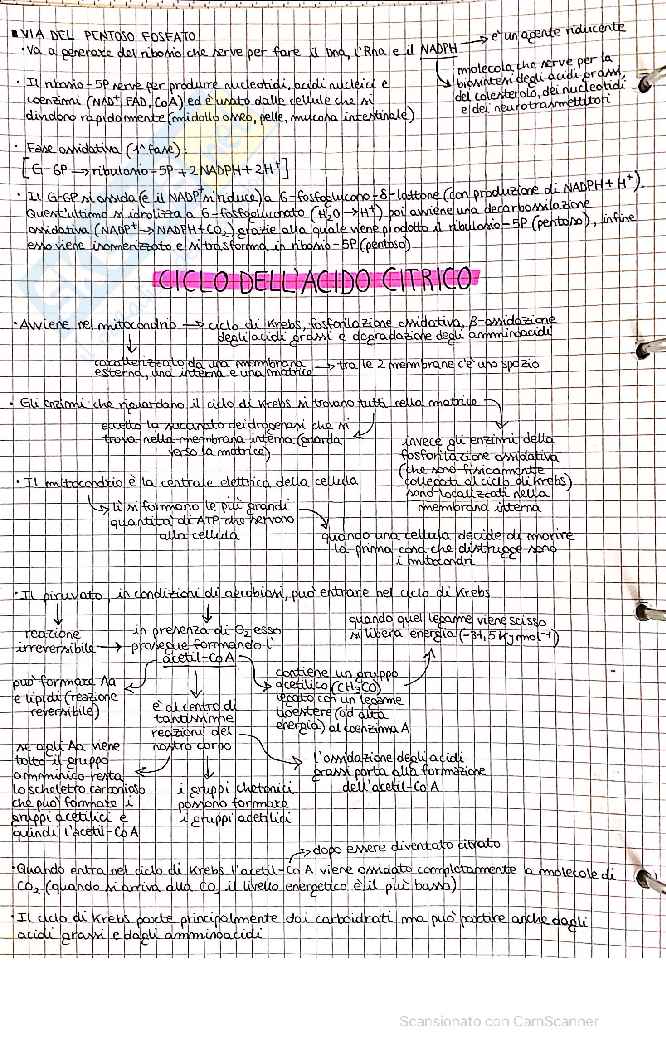 ▪VIA DEL PENTOSO FOSFATO
• Va a generare del ribosio che serve per fare il Dna, l'Rna e il NADPH → è un agente riducente
molecola che serve per la
biosintesi degli acidi grassi,
del colesterolo, dei nucleotidi
e dei neurotrasmettitori
• Il ribosio-5P serve per produrre nucleotidi, acidi nucleici e
coenzimi (NAD⁺, FAD, CoA) ed è usato dalle cellule che si
dividono rapidamente (midollo osseo, pelle, mucosa intestinale)
• Fase ossidativa (1ª fase):
[G-6P → ribulosio-5P + 2NADPH + 2H⁺]
• Il G-6P si ossida (e il NADP⁺ si riduce) a 6-fosfoglucono-δ-lattone (con produzione di NADPH + H⁺).
Quest'ultimo si idrolizza a 6-fosfogluconato (H₂O → H⁺) poi avviene una decarbossilazione
ossidativa (NADP⁺ → NADPH + CO₂) grazie alla quale viene prodotto il ribulosio-5P (pentoso), infine
esso viene isomerizzato e si trasforma in ribosio-5P (pentoso)
CICLO DELL'ACIDO CITRICO
• Avviene nel mitocondrio → ciclo di Krebs, fosforilazione ossidativa, β-ossidazione
degli acidi grassi e degradazione degli amminoacidi
caratterizzato da una membrana
esterna, una interna e una matrice → tra le 2 membrane c'è uno spazio
• Gli enzimi che riguardano il ciclo di Krebs si trovano tutti nella matrice
eccetto la succinato deidrogenasi che si
trova nella membrana interna (guarda
verso la matrice)
invece gli enzimi della
fosforilazione ossidativa
(che sono fisicamente
collegati al ciclo di Krebs)
sono localizzati nella
membrana interna
• Il mitocondrio è la centrale elettrica della cellula
lì si formano le più grandi
quantità di ATP che servono
alla cellula
quando una cellula decide di morire
la prima cosa che distrugge sono
i mitocondri
• Il piruvato, in condizioni di aerobiosi, può entrare nel ciclo di Krebs
reazione
irreversibile →
in presenza di O₂ esso
prosegue formando l'
acetil-CoA
quando quel legame viene scisso
si libera energia (-31,5 Kj mol⁻¹)
può formare Aa
e lipidi (reazione
reversibile)
è al centro di
tantissime
reazioni del
nostro corpo
contiene un gruppo
acetilico (CH₃CO)
legato con un legame
tioestere (ad alta
energia) al coenzima A
se agli Aa viene
tolto il gruppo
amminico resta
lo scheletro carbonioso
che può formare i
gruppi acetilici e
quindi l'acetil-CoA
i gruppi chetonici
possono formare
i gruppi acetilici
l'ossidazione degli acidi
grassi porta alla formazione
dell'acetil-CoA
→ dopo essere diventato citrato
• Quando entra nel ciclo di Krebs l'acetil-CoA viene ossidato completamente a molecole di
CO₂ (quando si arriva alla CO₂ il livello energetico è il più basso)
• Il ciclo di Krebs parte principalmente dai carboidrati ma può partire anche dagli
acidi grassi e dagli amminoacidi
Scansionato con CamScanner